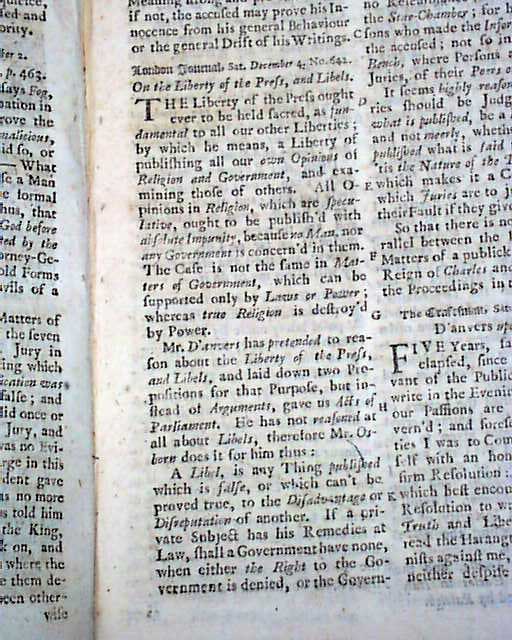 if not, the accused may prove his In-
nocence from his general Behaviour
or the general Drift of his Writings.
London Journal, Sat. December 4. No. 642.
On the Liberty of the Press, and Libels.
THE Liberty of the Press ought
ever to be held sacred, as fun-
damental to all our other Liberties;
by which he means, a Liberty of
publishing all our own Opinions of
Religion and Government, and exa-
mining those of others. All O-
pinions in Religion, which are specu-
lative, ought to be publish'd with
absolute Impunity, because no Man, nor
any Government is concern'd in them.
The Case is not the same in Mat-
ters of Government, which can be
supported only by Laws or Power;
whereas true Religion is destroy'd
by Power.
Mr. D'anvers has pretended to rea-
son about the Liberty of the Press,
and Libels, and laid down two Pro-
positions for that Purpose, but in-
stead of Arguments, gave us Acts of
Parliament. He has not reasoned at
all about Libels, therefore Mr. Os-
born does it for him thus:
A Libel, is any Thing published
which is false, or which can't be
proved true, to the Disadvantage or
Disreputation of another. If a pri-
vate Subject has his Remedies at
Law, shall a Government have none,
when either the Right to the Go-
vernment is denied, or the Govern-
p. 463.
says Fog,
malicious,
did so, or
What
se a Man
e formal
hus, that
God before
ed by the
orney-Ge-
old Forms
Evils of a
Matters of
the seven
Jury in
ing which
false; and
did once or
Jury, and
was no Evi-
rge in this
dent gave
as no more
s told him
the King,
k on, and
s where the
e them de-
been other-
wise
C
D
E
F
G
H
K
the Star-Chamber; for
sons who made the Infor
the accused; not so in
Bench, where Persons
Juries, of their Peers
It seems highly reason
ries should be Judg
what is published, be a
and not meerly, wheth
published what is said
'tis the Nature of the T
which makes it a C
which Juries are to j
their Fault if they give
So that there is no
rallel between the
Matters of a publick
Reign of Charles and
the Proceedings in t
The Craftsman, Sat.
D'anvers upo
FIVE Years, sa
elapsed, since
vant of the Public
write in the Evenin
our Passions are
vern'd; and forese
ties I was to Com
self with an hon
firm Resolution:
which best encou
Resolution to w
Truth and Libe
read the Harang
nists against me,
neither despise